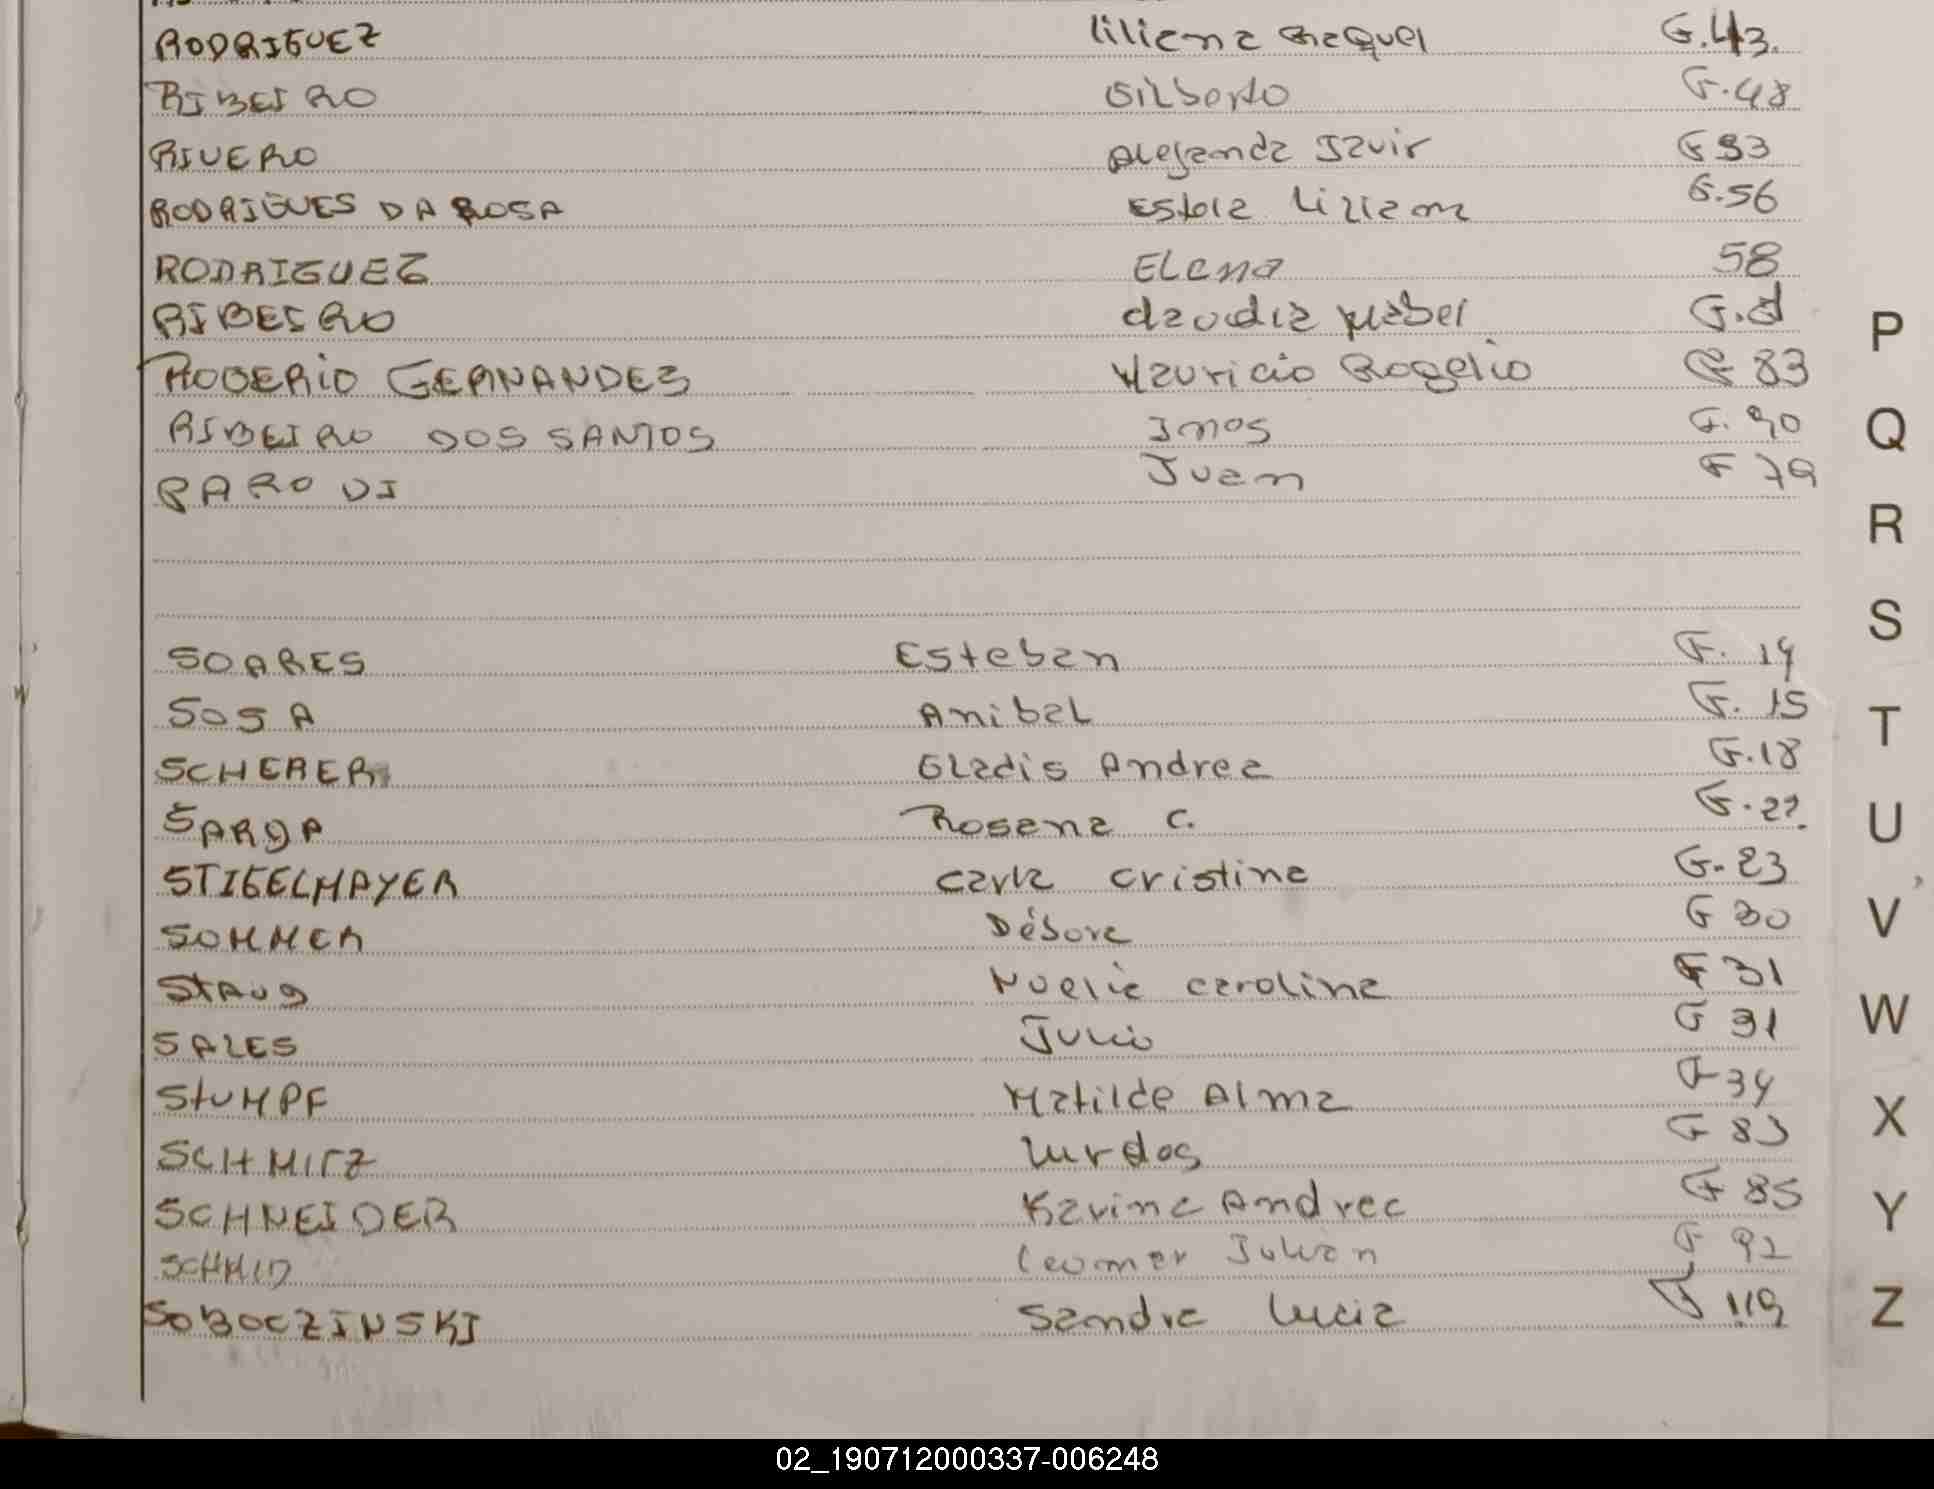 RODRIGUEZ liliana Raquel G.43.
RIBEIRO Gilberto F.48
RIVERO Alejandz Javir G 93
RODRIGUES DA ROSA Estela Liliam G.56
RODRIGUEZ ELena 58
RIBEIRO claudia Mabel G.
ROGERIO GERNANDES Mauricio Rogelio G 83
RIBEIRO DOS SANTOS F. 90
PARODI Juan F 79
SOARES Esteban F. 14
SOSA Anibal F. 15
SCHERER Gladis Andrea G.18
SAROA Rosana C. G.22.
STIGELMAYER Carla Cristina G.23
SOMMER Débora G 30
STAUD Noelia Carolina F 31
SALES Julio G 31
STUMPF Matilde Alma F 34
SCHMITZ Lurdes G 83
SCHNEIDER Karina Andrea F 85
SCHMID Leomar Julian F 92
SOBOCZINSKI Sandra Lucia F 119
P
Q
R
S
T
U
V
W
X
Y
Z
02_190712000337-006248